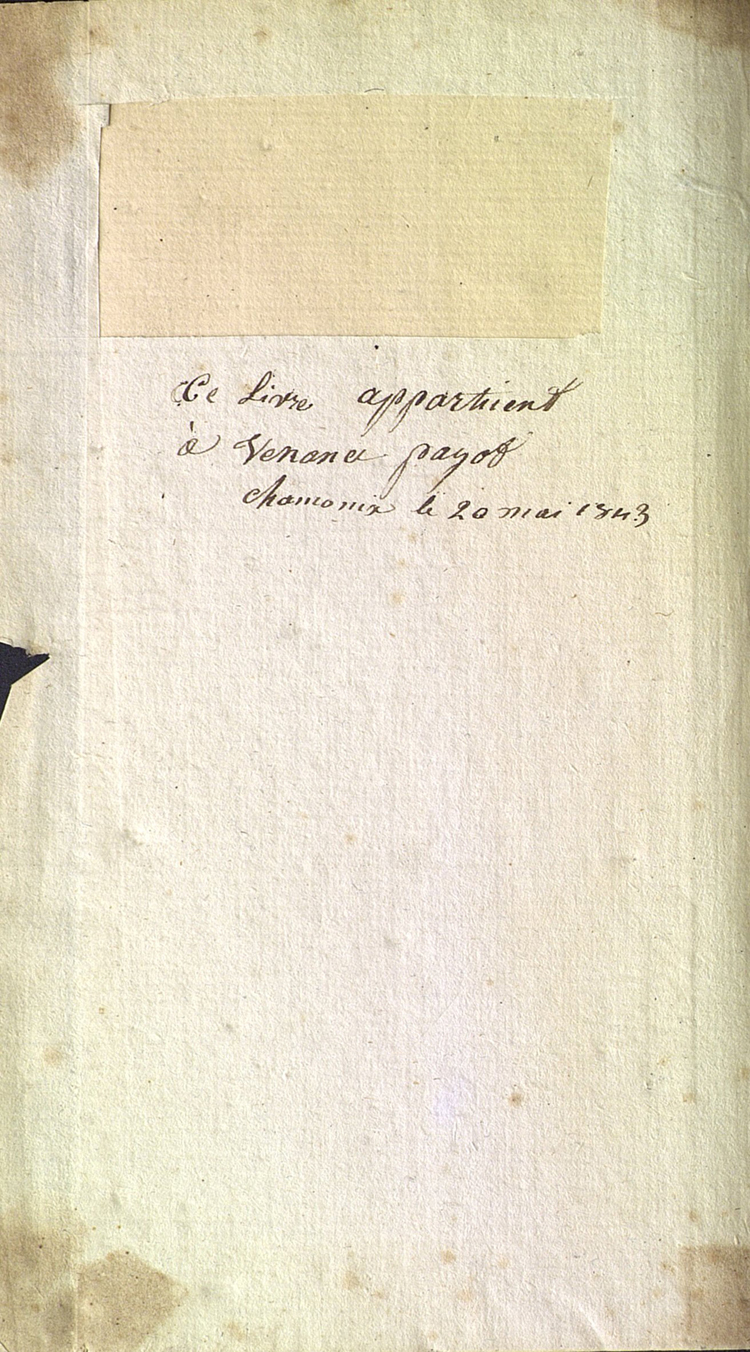 Ce Livre appartient
à Venance payot
chamonix le 20 mai 1843